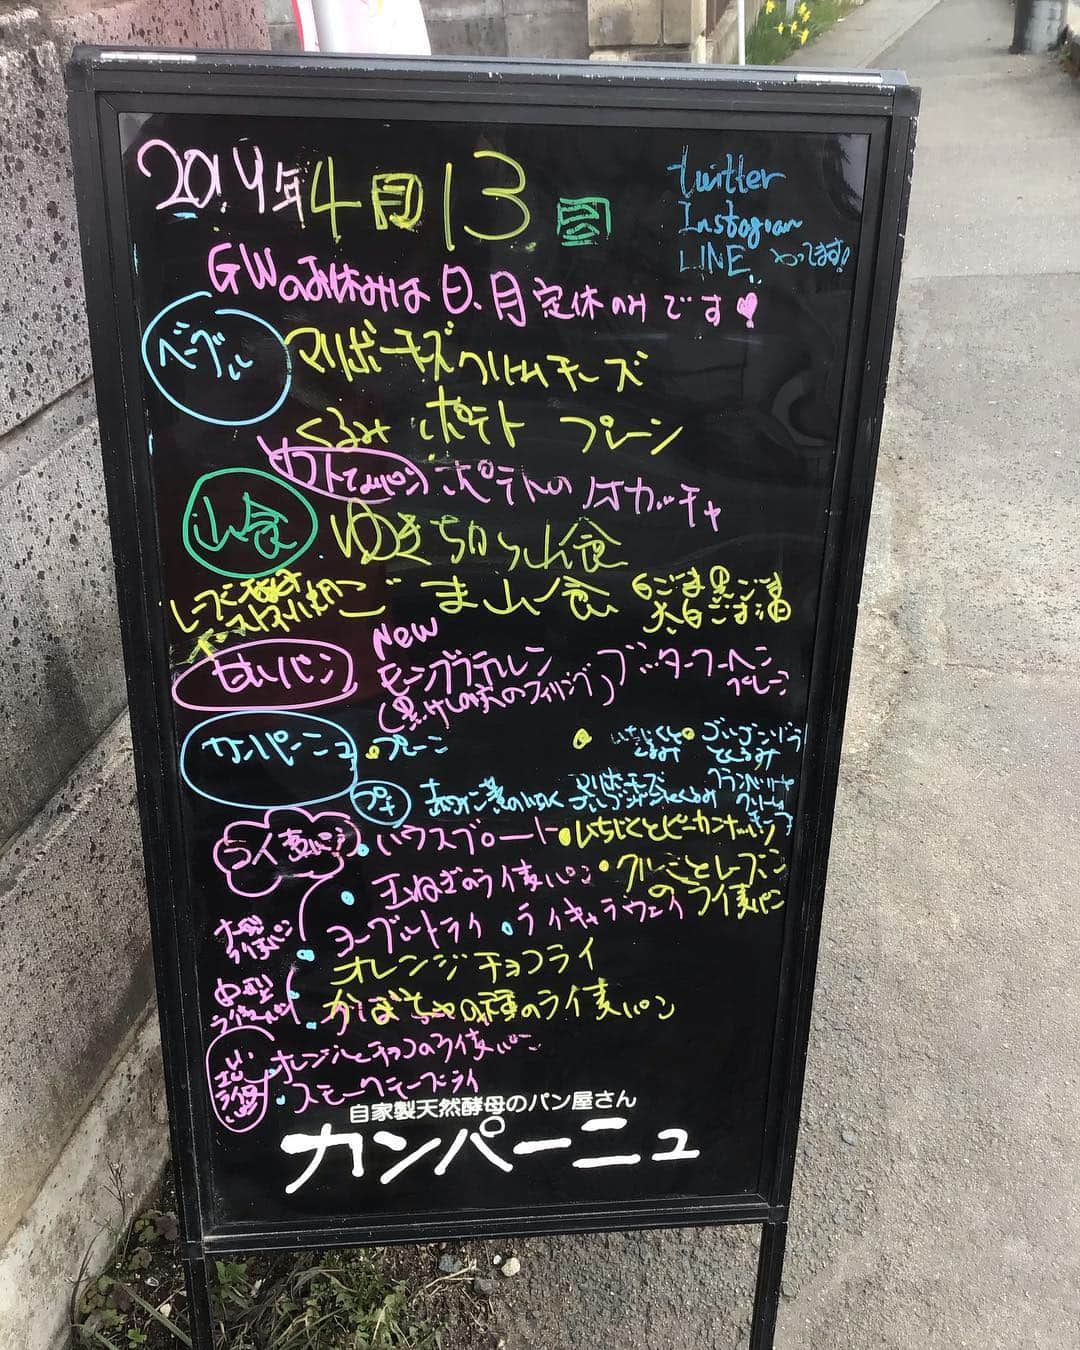 2019年4月13日
twitter
Instagram
LINE やってます!
GWのお休みは日、月定休のみです
ベーグル
マリボーチーズ クリームチーズ
くるみ ポテト プレーン
ポテトのフォカッチャ
山食
ゆきちから山食
ごま山食 白ごま黒ごま
太白ごま油
甘いパン
New
モーンプラテルン
(黒けしの実のフィリング)
バタークーヘン
プレーン
カンパーニュ
プレーン
いちじくとくるみ
ゴルゴンゾラとくるみ
プチ
マリボーチーズ
ライ麦パン
ハウスブロート
いちじくとピーカンナッツ
玉ねぎのライ麦パン
クルミとレーズンのライ麦パン
大型ライ麦パン
ヨーグルトライ
ライキャラウェイ
オレンジチョコライ
中型ライ麦パン
かぼちゃの種のライ麦パン
オレンジとチョコのライ麦パン
スモークチーズライ
自家製天然酵母のパン屋さん
カンパーニュ